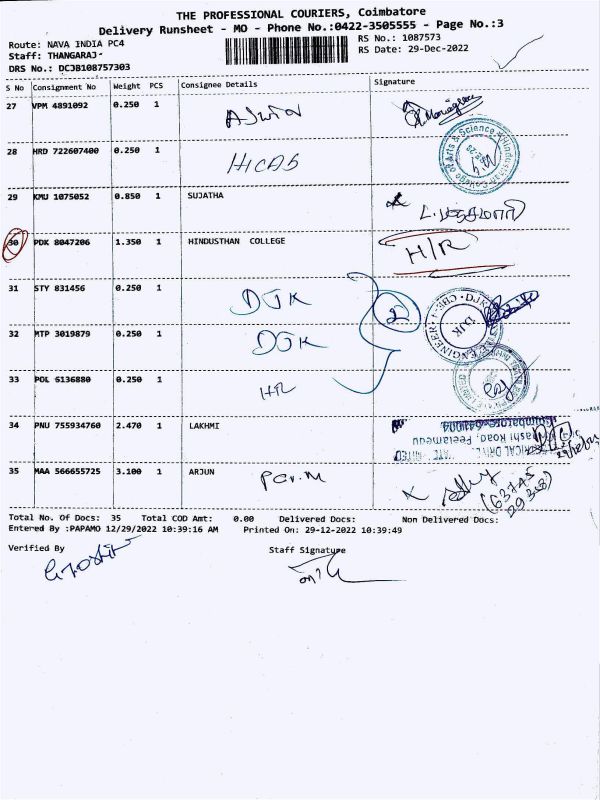 THE PROFESSIONAL COURIERS, Coimbatore
Delivery Runsheet - MO - Phone No.:0422-3505555 - Page No.:3
Route: NAVA INDIA PC4
RS No.: 1087573
Staff: THANGARAJ-
RS Date: 29-Dec-2022
DRS No.: DCJB108757303
S No Consignment No Weight PCS Consignee Details Signature
27 VPM 4891092 0.250 1
28 HRD 722607400 0.250 1 HICAS
29 KMU 1075052 0.850 1 SUJATHA
30 PDK 8047206 1.350 1 HINDUSTHAN COLLEGE H/R
31 STY 831456 0.250 1 DJK
32 MTP 3019879 0.250 1 DJK
2
33 POL 6136880 0.250 1 HR
34 PNU 755934760 2.470 1 LAKHMI
35 MAA 566655725 3.100 1 ARJUN
Total No. Of Docs: 35 Total COD Amt: 0.00 Delivered Docs: Non Delivered Docs:
Entered By :PAPAMO 12/29/2022 10:39:16 AM Printed On: 29-12-2022 10:39:49
Verified By Staff Signature